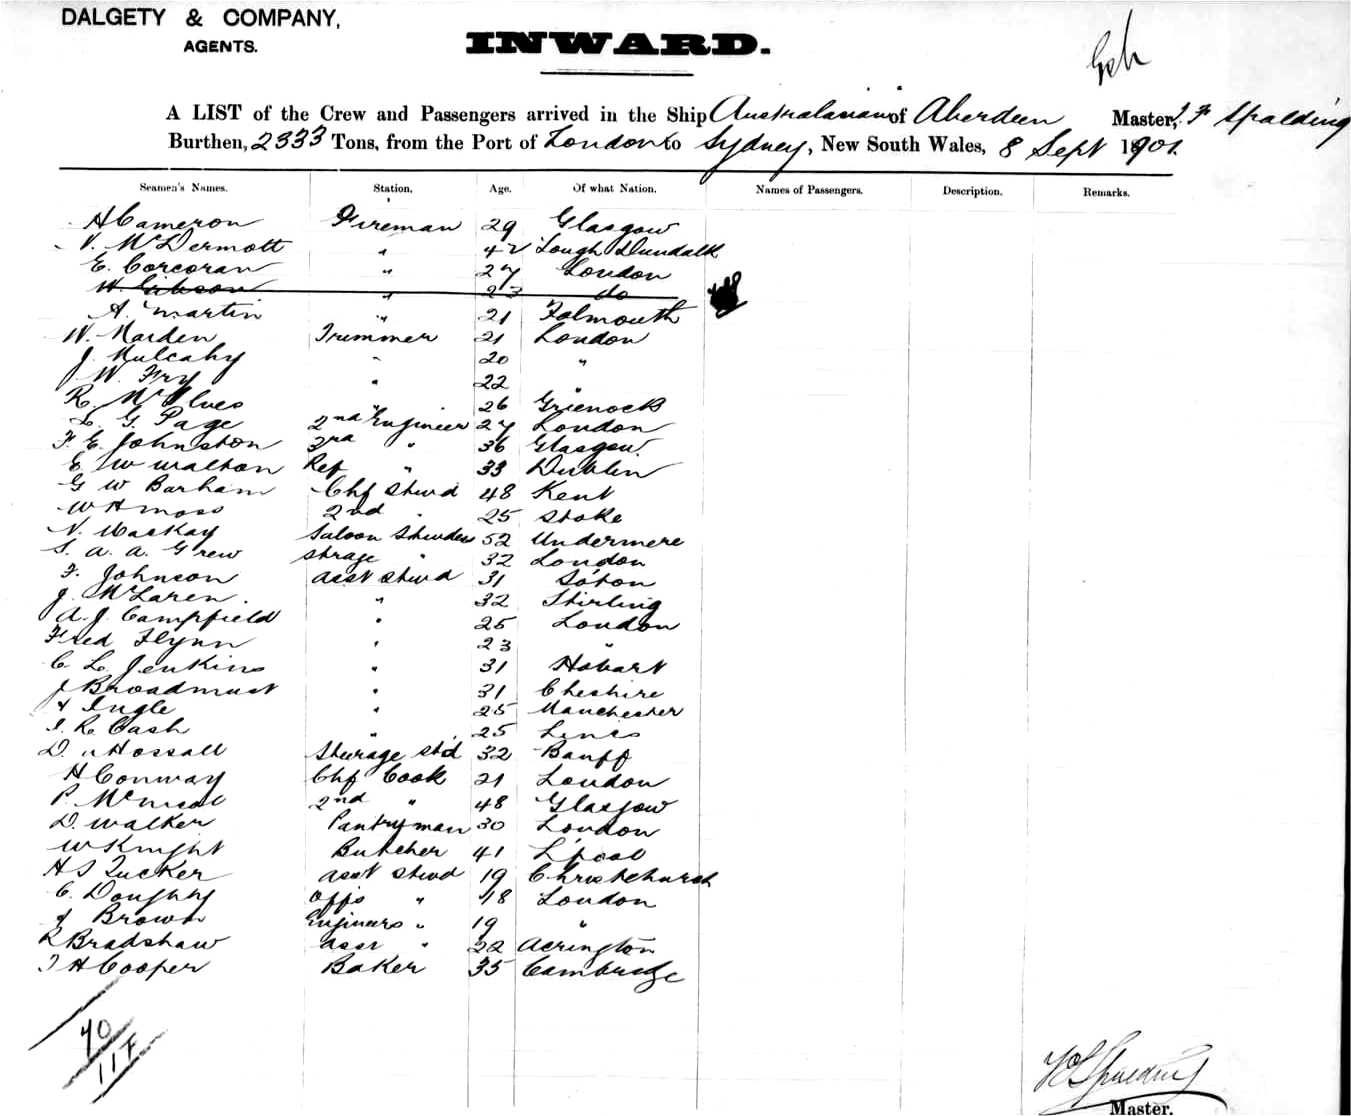 DALGETY & COMPANY,
AGENTS.
INWARD.
A LIST of the Crew and Passengers arrived in the Ship Australasian of Aberdeen Master, Spalding
Burthen, 2333 Tons, from the Port of London to Sydney, New South Wales, 8 Sept 1901.
Seamen's Names. Station. Age. Of what Nation. Names of Passengers. Description. Remarks.
H Cameron Fireman 29 Glasgow
N. McDermott " 42 Lough Dundalk
E. Corcoran " 27 London
W. Gibson " 23 do
A. Martin " 21 Falmouth
W. Marden Trimmer 21 London
J. Mulcahy " 20 "
J W. Fry " 22 "
R. " 26 Grienock
L. G. Page 2nd Engineer 27 London
F. E. Johnston 3rd " 36 Glasgow
E W Walton Ref " 33 Dublin
G W Barham Chf Stwd 48 Kent
W H Moss 2nd " 25 Stoke
N. Mackay Saloon 52 Undermere
S. A. A. Grew Strage " 32 London
F. Johnson Asst Stwd 31 So'ton
J. McLaren " 32 Stirling
A. J. Campfield " 25 London
Fred Flynn " 23 "
C L. Jenkins " 31 Hobart
J Broadmust " 31 Cheshire
Ingle " 25 Manchester
R Cash " 25 Lincs
D. Hossall Steerage Std 32 Banff
H Conway Chf Cook 21 London
P. McNicol 2nd " 48 Glasgow
D. Walker Pantryman 30 London
W Knight Butcher 41 L'pool
H S Tucker Asst Stwd 19 Christchurch
C. Doughty Offs " 18 London
J Brown Engineers " 19 "
R Bradshaw Asst " 22 Acrington
T H Cooper Baker 35 Cambridge
40
117
Spalding
Master.